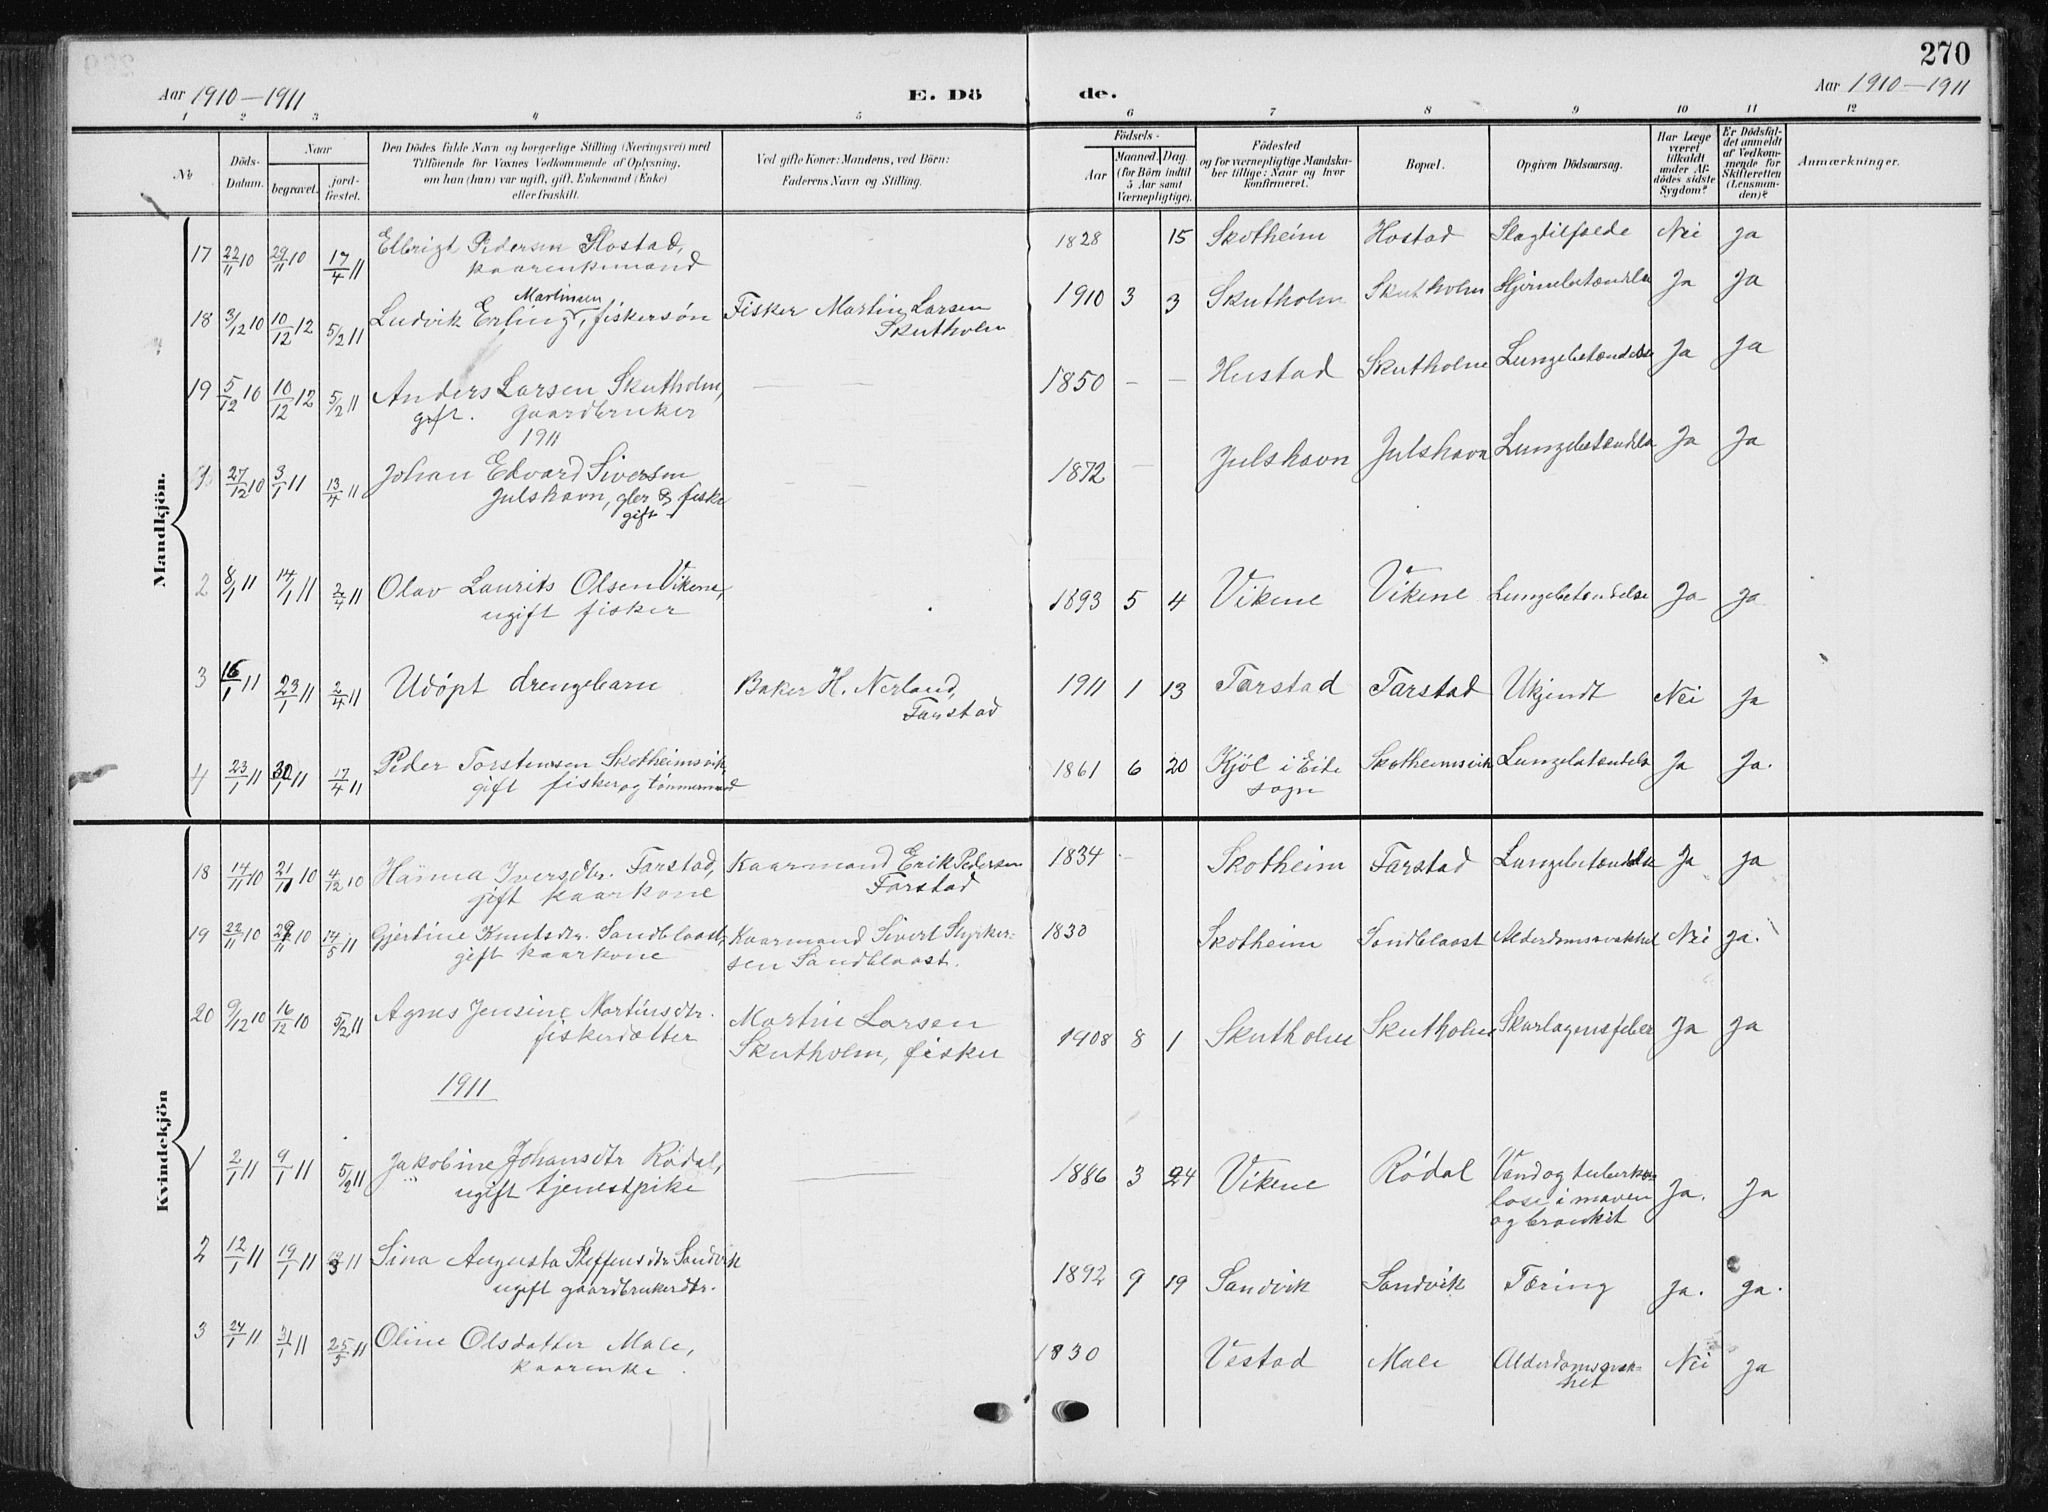 270
Aar 1910-1911 E. Dö de. Aar 1910-1911
1 2 3 4 5 6 7 8 9 10 11 12
No
Döds-Datum.
Naar
begravet.
jord-fæstet.
Den Dödes fulde Navn og borgerlige Stilling (Næringsvei) med
Tilföiende for Voxnes Vedkommende af Oplysning,
om han (hun) var ugift, gift, Enkemand (Enke)
eller fraskilt.
Ved gifte Koner: Mandens, ved Börn:
Faderens Navn og Stilling.
Födsels-
Aar
Maaned. Dag.
(for Börn indtil
5 Aar samt
Værnepligtige).
Födested
og for værnepligtige Mandska-
ber tillige: Naar og hvor
konfirmeret.
Bopæl.
Opgiven Dödsaarsag.
Har Læge
været
tilkaldt
under Af-
dödes sidste
Sygdom?
Er Dödsfal-
det anmeldt
af Vedkom-
mende for
Skifteretten
(Lensman-
den)?
Anmærkninger.
Mandkjön.
17 22/11 10 29/11 10 17/4 11 Elbrigt Pedersen Hostad, 1828 15 Skotheim Hostad Slagtilfælde Nei Ja
kaarenkemand
18 3/12 10 10/12 12 5/2 11 Ludvik Erling Martinsen, fiskersøn Fisker Martin Larsen 1910 3 3 Skutholm Skutholm Hjernebetændelse Ja Ja
Skutholm
19 5/12 10 10/12 12 5/2 11 Anders Larsen Skutholm, — — 1850 — — Hustad Skutholm Lungebetændelse Ja Ja
gift. gaardbruker
1911
1 27/12 10 3/1 11 13/4 11 Johan Edvard Siversen 1872 — Julshavn Julshavn Lungebetændelse Ja Ja
Julshavn, gbr & fisker
gift
2 8/1 11 14/1 11 2/4 11 Olav Laurits Olsen Vikene, 1893 5 4 Vikene Vikene Lungebetændelse Ja Ja
ugift fisker
3 16/1 11 23/1 11 2/4 11 Udøpt drengebarn Baker H. Nerland, 1911 1 13 Farstad Farstad Ukjendt Nei Ja
Farstad
4 23/1 11 30/1 11 17/4 11 Peder Torstensen Skotheimsvik, 1861 6 20 Kjöl i Eide Skotheimsvik Lungebetændelse Ja Ja.
gift fisker og tømmermand sogn
Kvindekjön
18 14/11 10 21/11 10 4/12 10 Hanna Iversdtr. Farstad, Kaarmand Erik Pedersen 1834 — Skotheim Farstad Lungebetændelse Ja Ja
gift kaarkone Farstad
19 22/11 10 28/11 10 14/5 11 Gjertine Knutsdtr. Sandblaast, Kaarmand Sivert Styrker- 1830 Skotheim Sandblaast Alderdomssvakhet Nei Ja.
gift kaarkone sen Sandblaast.
20 9/12 10 16/12 10 5/2 11 Agnes Jensine Martinsdtr. Martin Larsen 1908 8 1 Skutholm Skutholm Skarlagensfeber Ja Ja
fiskerdatter Skutholm, fisker
1911
1 2/1 11 9/1 11 5/2 11 Jakobine Johansdtr Rødal, — 1886 3 24 Vikene Rødal Vand og tuberku- Ja. Ja
ugift tjenestpike lose i maven
og brøskit
2 12/1 11 19/1 11 11 Sina Augusta Steffensdtr Sandvik 1892 9 19 Sandvik Sandvik Tæring Ja. Ja.
ugift gaardbrukerdtr.
3 24/1 11 31/1 11 25/5 11 Oline Olsdatter Male, 1830 Vestad Male Alderdomssvak- Nei Ja
kaarenke. het